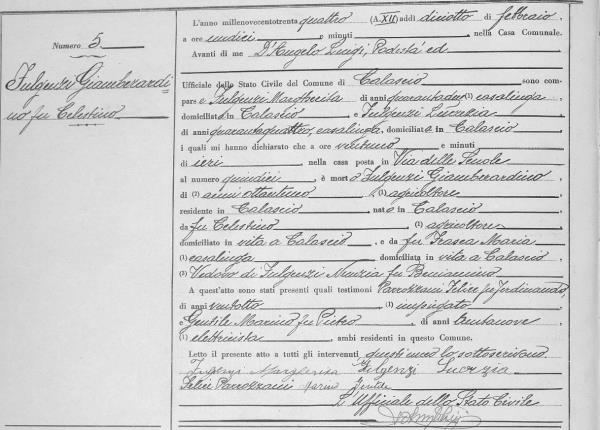 Numero 5
Fulgenzi Giamberardi=
no fu Celestino
L'anno millenovecentotrenta quattro (A. XII) addì diciotto di febbraio,
a ore undici e minuti , nella Casa Comunale.
Avanti di me D'Angelo Luigi, Podestà ed
Ufficiale dello Stato Civile del Comune di Calascio sono com-
parse Fulgenzi Margherita di anni quarantadue (1) casalinga
domiciliata in Calascio e Fulgenzi Lucrezia
di anni quarantaquattro, casalinga, domiciliata in Calascio
i quali mi hanno dichiarato che a ore ventuno e minuti
di ieri , nella casa posta in Via delle Scuole
al numero quindici , è morto Fulgenzi Giamberardino
di (2) anni ottantuno (1) agricoltore
residente in Calascio nato in Calascio
da fu Celestino (1) agricoltore
domiciliato in vita a Calascio , e da fu Frasca Maria
(1) casalinga domiciliata in vita a Calascio
(3) Vedovo di Fulgenzi Nunzia fu Beniamino
A quest'atto sono stati presenti quali testimoni Parrozzani Felice fu Ferdinando,
di anni ventotto (1) impiegato ,
e Gentile Marino fu Pietro di anni trentanove ,
(1) elettricista , ambi residenti in questo Comune.
Letto il presente atto a tutti gli intervenuti questi meco lo sottoscrivono.
Fulgenzi Margherita Fulgenzi Lucrezia
Felice Parrozzani Marino Gentile
L'Ufficiale dello Stato Civile